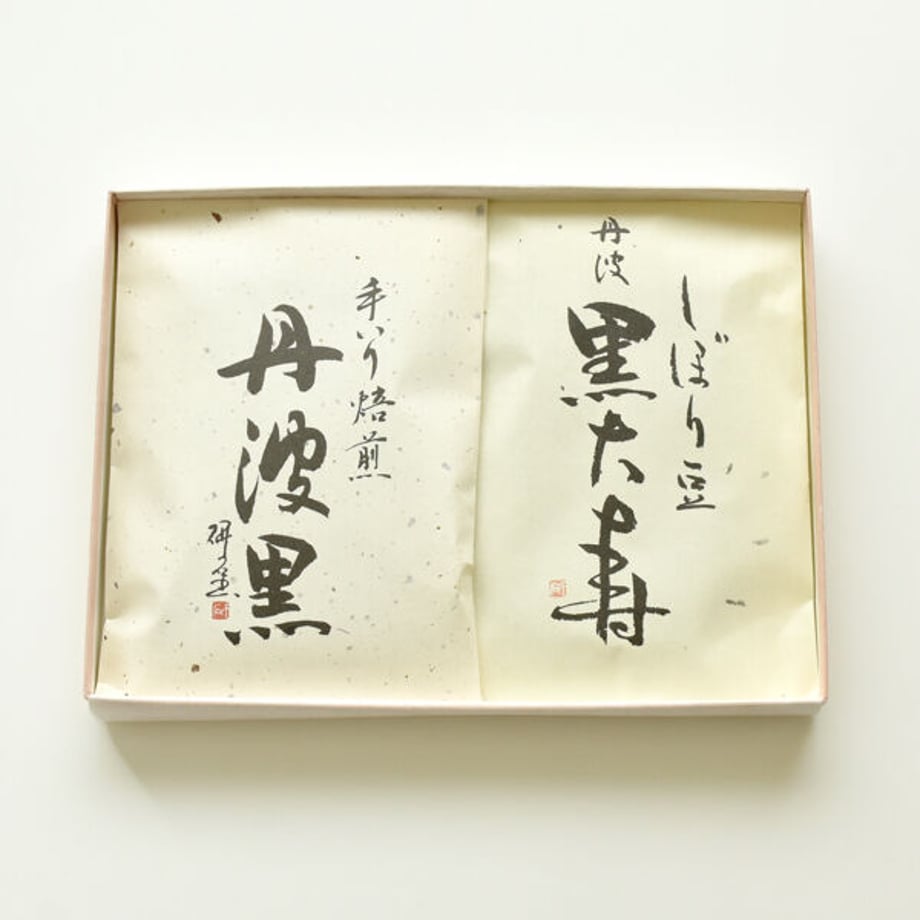 手いり焙煎
丹波黒
しぼり豆
丹波
黒大寿